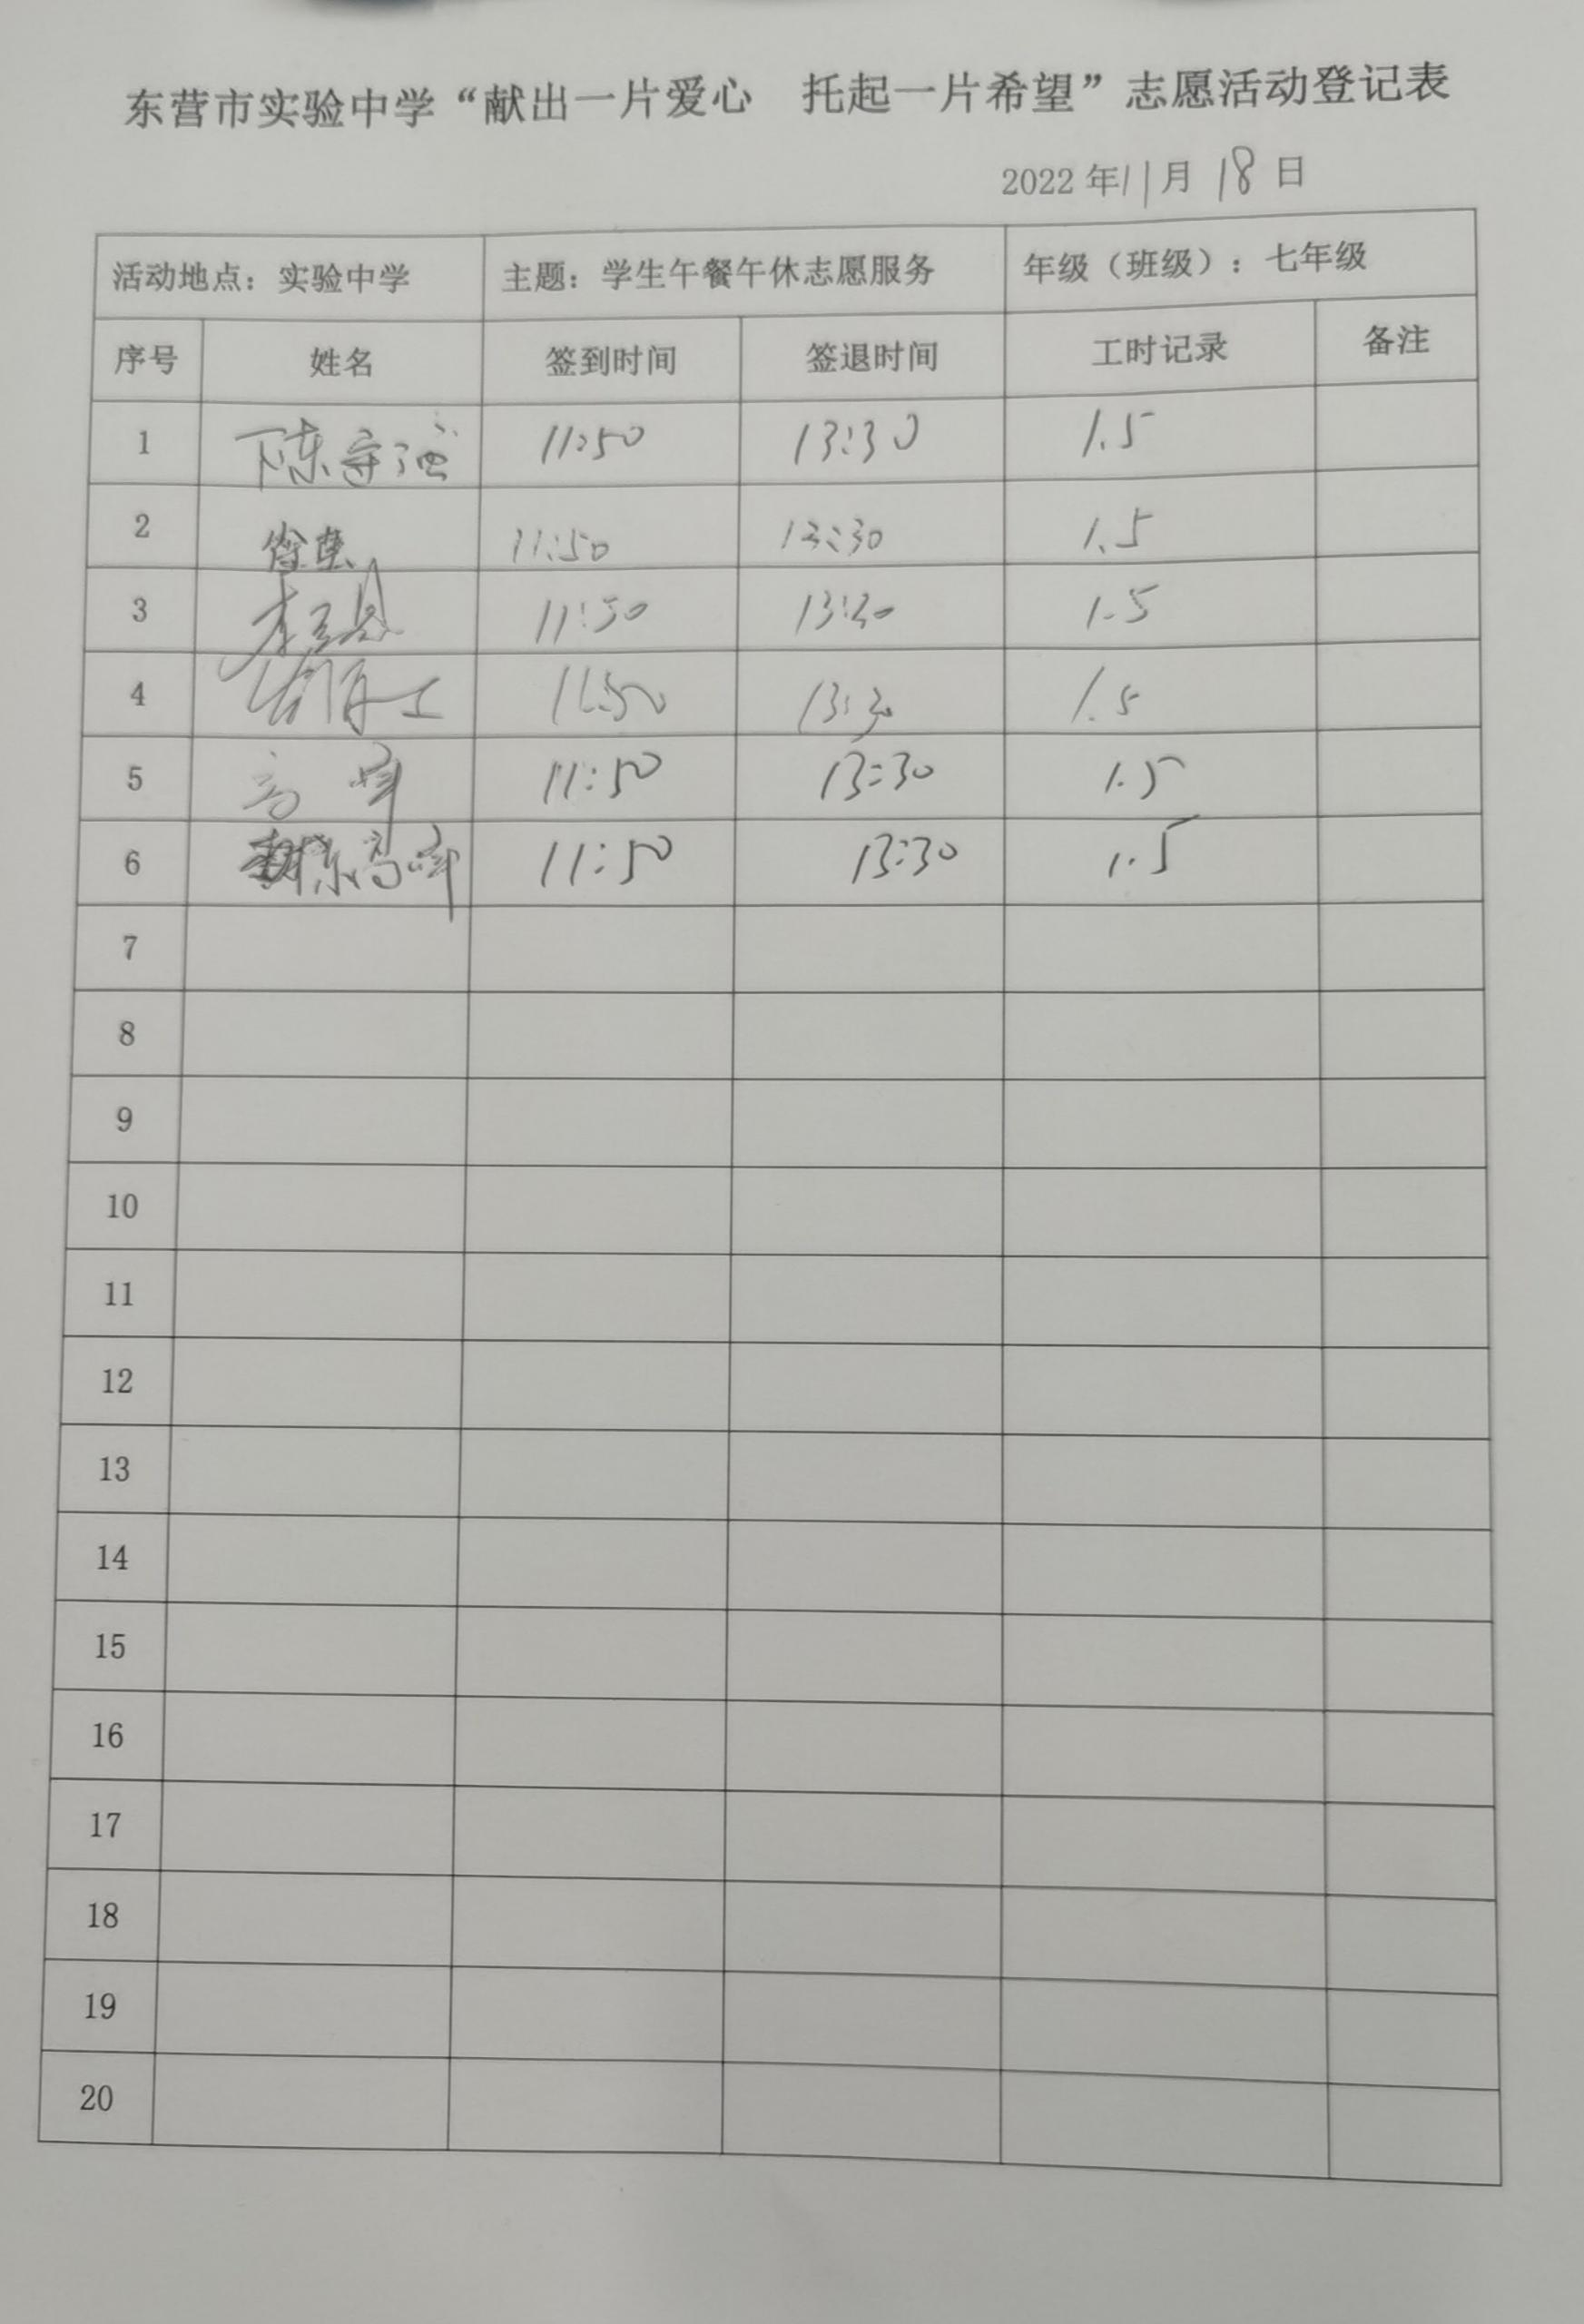 东营市实验中学“献出一片爱心 托起一片希望”志愿活动登记表
2022年11月18日
活动地点：实验中学 主题：学生午餐午休志愿服务 年级（班级）：七年级
序号 姓名 签到时间 签退时间 工时记录 备注
1 陈 11:50 13:30 1.5
2 11:50 13:30 1.5
3 李 11:50 13:30 1.5
4 11:50 13:30 1.5
5 高 11:50 13:30 1.5
6 11:50 13:30 1.5
7
8
9
10
11
12
13
14
15
16
17
18
19
20